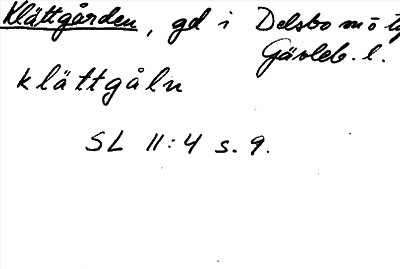 Klättgården, gd i Delsbo mö
Gävleb. l.
klättgåln
SL 11:4 s. 9.